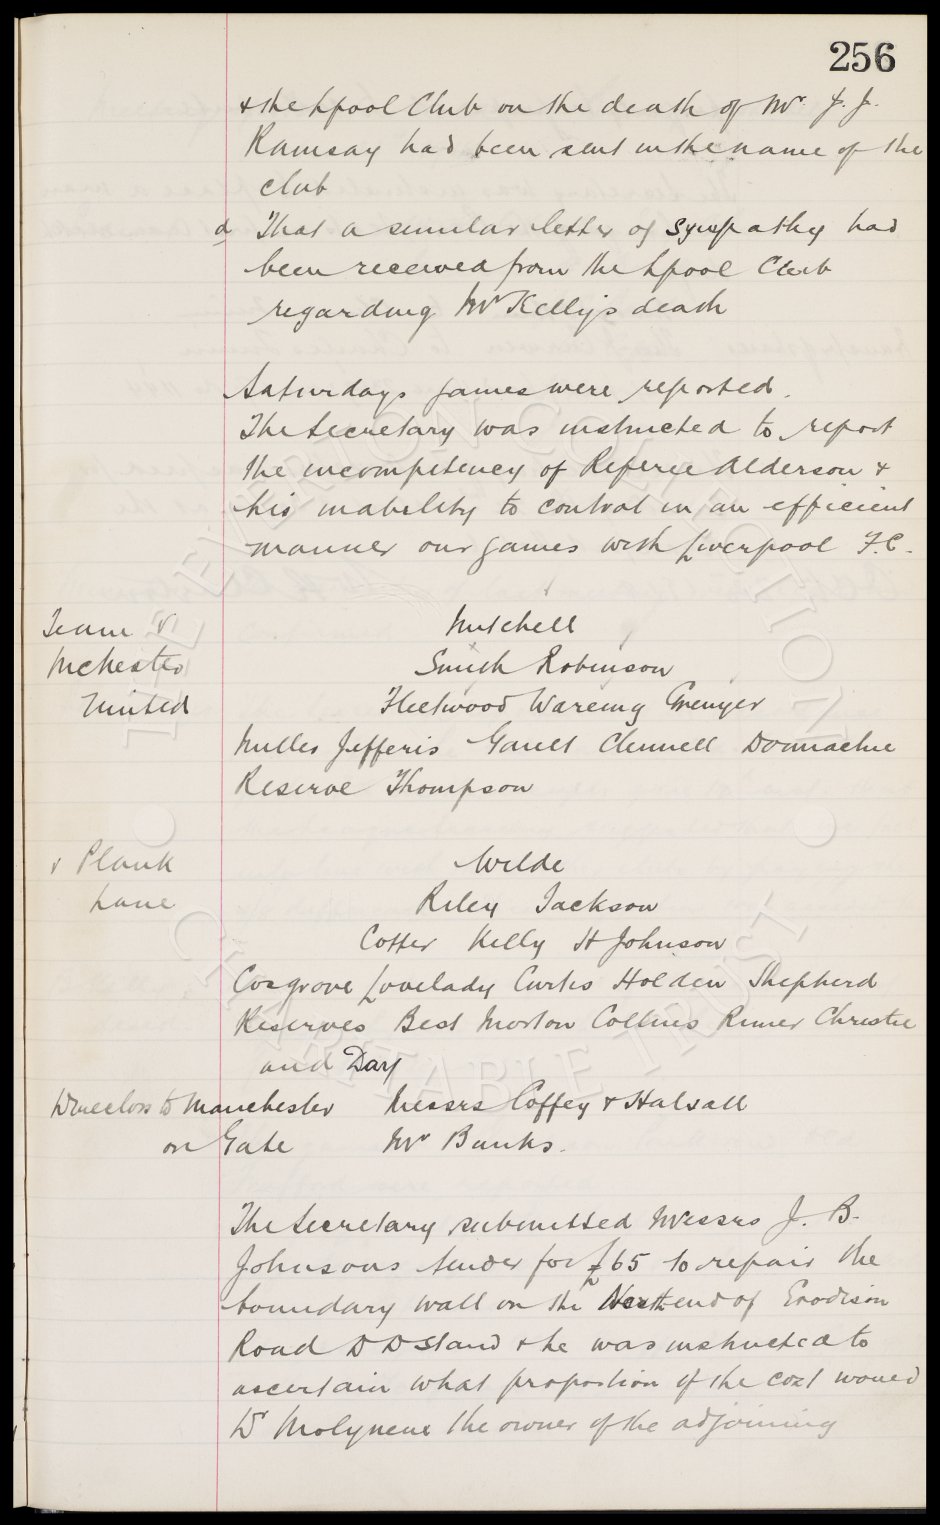 256
& the Lpool Club on the death of Mr. J. J.
Ramsay had been sent in the name of the
club
d That a similar letter of sympathy had
been received from the Lpool Club
regarding Mr Kelly's death
Saturdays games were reported.
The Secretary was instructed to report
the incompetency of Referee Alderson &
his inability to control in an efficient
manner our games with Liverpool F.C.
Team v Mitchell
Mchester Smith Robinson
United Fleetwood Wareing Grenyer
Miller Jefferis Gault Clennell Donnachie
Reserve Thompson
v Plank Wilde
Lane Riley Jackson
Cotter Kelly H Johnson
Cosgrove Lovelady Curtis Holden Shepherd
Reserves Best Morton Collins Rimer Christie
and Day
Directors to Manchester Messrs Coffey & Halsall
on Gate Mr Banks.
The Secretary submitted Messrs J. B.
Johnsons tender for £65 to repair the
boundary wall on the North end of Goodison
Road D D Stand & he was instructed to
ascertain what proportion of the cost would
Dr Molyneux the owner of the adjoining
THE EVERTON COLLECTION
CHARITABLE TRUST